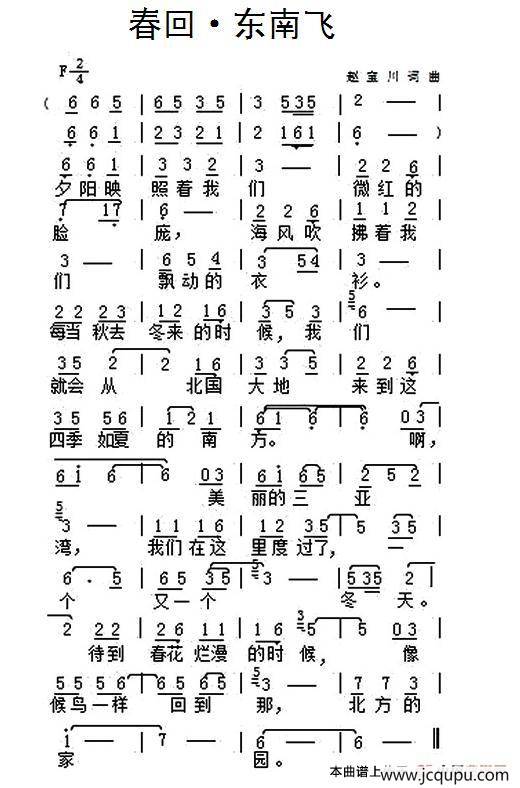 春回·东南飞
F 2/4
赵宝川 词曲
( 6 6 5 | 6 5 3 5 | 3 5 3 5 | 2 — |
6 6 1 | 2 3 2 1 | 2 1 6 1 | 6 — )
6 6 1 | 3 3 2 | 3 — | 2 2 6 |
夕阳映 照着我 们 微红的
7 1 7 | 6 — | 2 2 2 6 | 1 1 2 |
脸 庞， 海风吹 拂着我
3 — | 6 5 4 | 3 5 4 | 3 — |
们 飘动的 衣 衫。
2 2 2 3 | 1 2 1 6 | 3 5 3 | 5 6 — |
每当秋去 冬来的时 候，我 们
3 5 2 | 2 1 6 | 3 3 5 | 2 2 6 |
就会从 北国 大地 来到这
3 5 5 6 | 1 2 1 | 6 1 6 | 6 0 3 |
四季如夏 的南 方。 啊，
6 1 6 | 6 0 3 | 6 1 6 3 | 2 5 2 |
美 丽的三 亚
5 3 — | 1 1 1 6 | 1 2 3 5 | 5 3 5 |
湾， 我们在这 里度过了， 一
6 · 5 | 6 5 3 5 | 5 3 — | 5 3 5 2 |
个 又一个 冬天。
2 2 2 | 2 6 1 1 | 2 1 6 3 5 | 5 0 3 |
待到 春花烂漫 的时候， 像
5 5 5 6 | 6 5 6 5 | 5 3 — | 7 7 3 |
候鸟一样 回到 那， 北方的
1 — | 7 — | 6 — | 6 — ‖
家 园。
本曲谱上
www.jcqupu.com